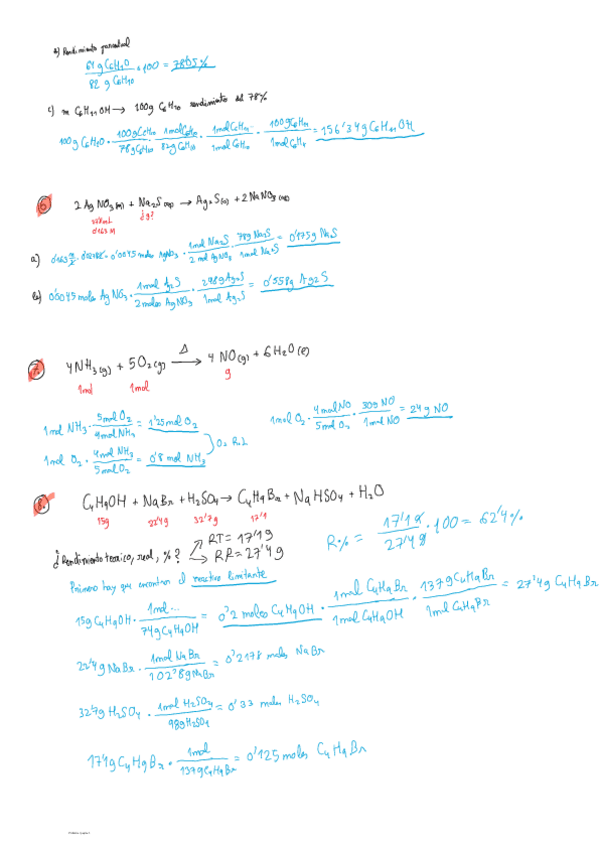 b) Rendimiento porcentual
64 g C6H10 / 82 g C6H10 · 100 = 78'05 %
c) m C6H11OH → 100g C6H10 rendimiento del 78%
= 156'34g C6H11OH
6. 2 AgNO3(aq) + Na2S(aq) → Ag2S(s) + 2 NaNO3(aq)
0'163 M ¿g?
a) · 1mol Na2S / 2 mol AgNO3 · 78g Na2S / 1mol Na2S = 0'175g Na2S
b) 0'0045 moles AgNO3 · 1mol Ag2S / 2 moles AgNO3 · 248g Ag2S / 1mol Ag2S = 0'558g Ag2S
7. 4NH3(g) + 5O2(g) —Δ→ 4 NO(g) + 6H2O(l)
1mol 1mol g
1mol NH3 · 5mol O2 / 4mol NH3 = 1'25mol O2
1mol O2 · 4mol NO / 5mol O2 · 30g NO / 1mol NO = 24g NO
1mol O2 · 4mol NH3 / 5mol O2 = 0'8 mol NH3
O2 R.L
8. C4H9OH + NaBr + H2SO4 → C4H9Br + NaHSO4 + H2O
15g 22'4g 32'7g 17'1
¿Rendimiento teorico, real, %? RT = 17'1g
RR = 27'4g
R% = 17'1g / 27'4g · 100 = 62'4%
Primero hay que encontrar el reactivo limitante
15g C4H9OH · 1mol... / 74g C4H9OH = 0'2 moles C4H9OH · 1mol C4H9Br / 1mol C4H9OH · 137g C4H9Br / 1mol C4H9Br = 27'4g C4H9Br
22'4g NaBr · 1mol NaBr / 102'8g NaBr = 0'2178 moles NaBr
32'7g H2SO4 · 1mol H2SO4 / 98g H2SO4 = 0'33 moles H2SO4
17'1g C4H9Br · 1mol / 137g C4H9Br = 0'125 moles C4H9Br